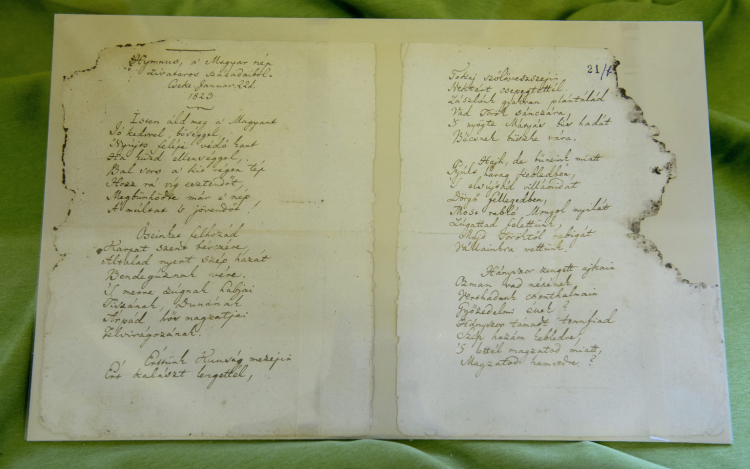 Hymnus, a' Magyar nép
zivataros századaiból.
Cseke Januar. 22d.
1823
Isten áldd meg a' Magyart
Jó kedvvel, bőséggel,
Nyújts feléje védő kart
Ha küzd ellenséggel;
Bal sors a' kit régen tép
Hozz rá víg esztendőt,
Megbűnhődte már e' nép
A' múltat 's jövendőt!
Őseinket felhozád
Kárpát szent bérczére,
Általad nyert szép hazát
Bendegúznak vére.
'S merre zúgnak habjai
Tiszának, Dunának
Árpád' hős magzatjai
Felvirágozának.
Értünk Kunság mezejin
Ért kalászt lengettél,
21/
Tokaj szőlővesszejin
Nektárt csepegtettél.
Zászlónk gyakran plántálád
Vad Török sánczára,
'S nyögte Mátyás bús hadát
Bécsnek büszke vára.
Hajh, de bűneink miatt
Gyúlt harag kebledben,
'S elsújtád villámidat
Dörgő fellegedben,
Most rabló Mongol nyilát
Zúgattad felettünk,
Majd Töröktől rabigát
Vállainkra vettünk.
Hányszor zengett ajkain
Ozman vad népének
Vert hadunk csonthalmain
Győzedelmi ének?
Hányszor támadt tennfiad
Szép hazám kebledre,
'S lettél magzatod miatt,
Magzatod hamvvedre?